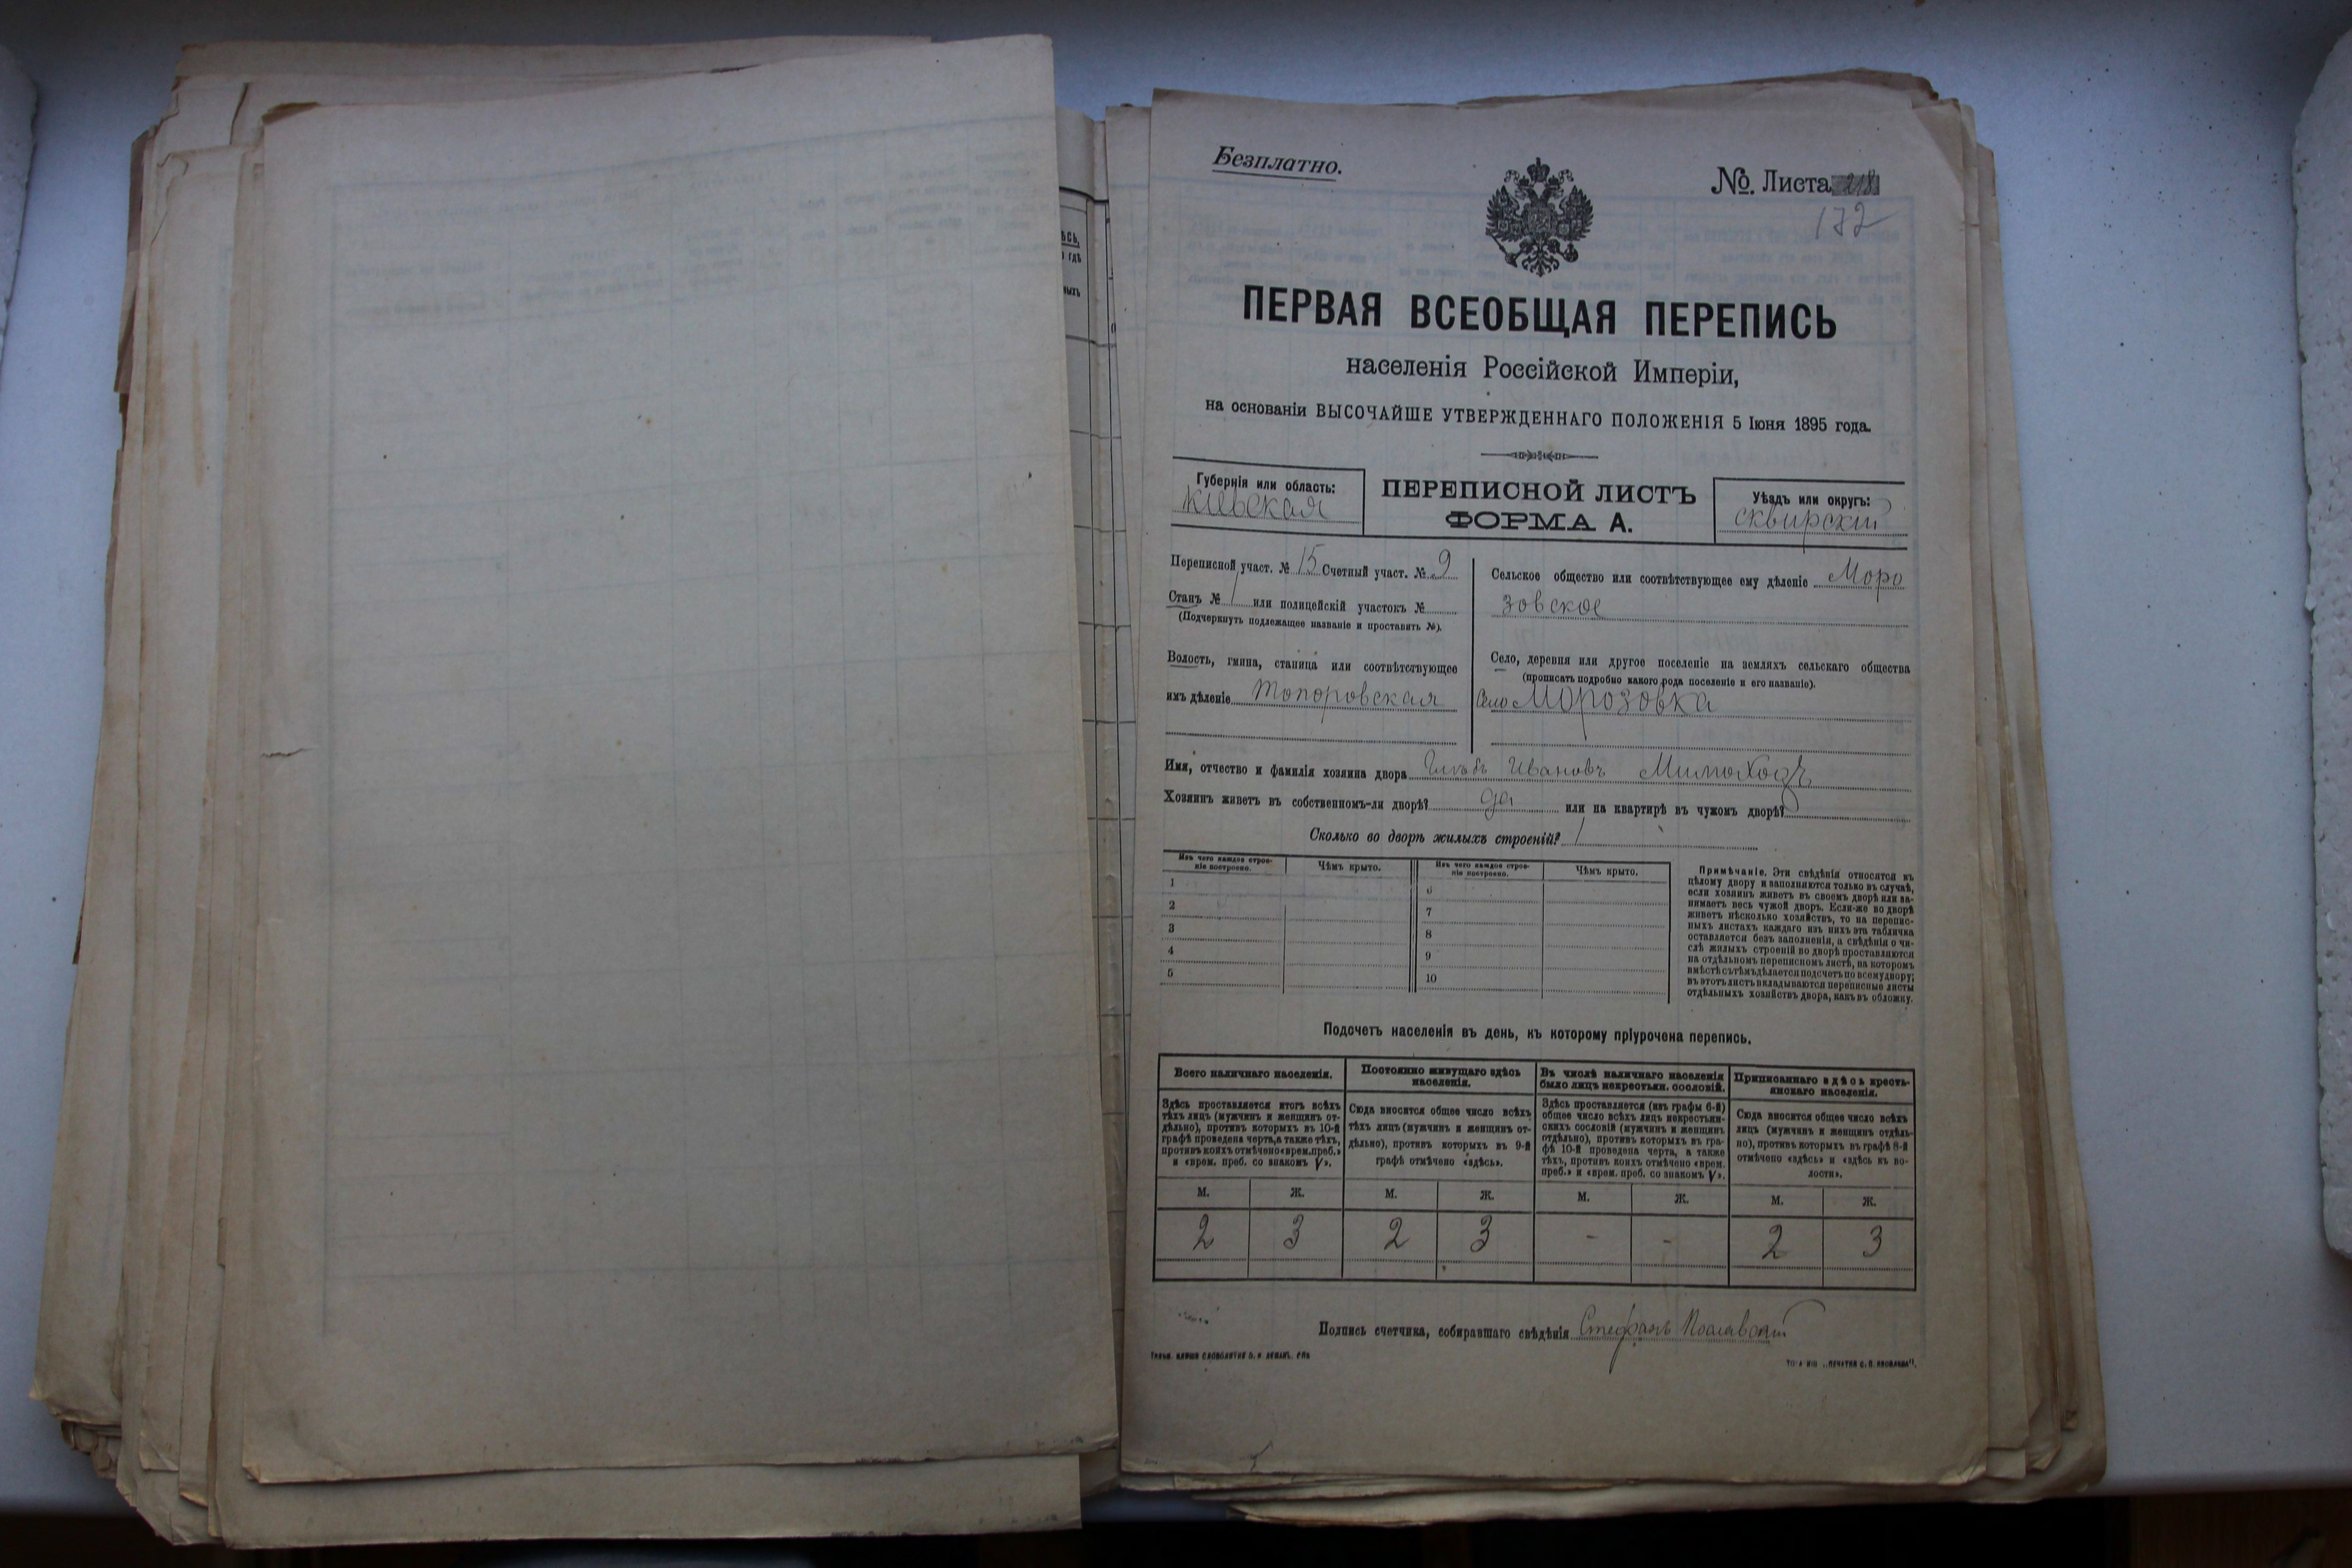 Безплатно.
№. Листа 218
172
ПЕРВАЯ ВСЕОБЩАЯ ПЕРЕПИСЬ
населенія Россійской Имперіи,
на основаніи ВЫСОЧАЙШЕ УТВЕРЖДЕННАГО ПОЛОЖЕНІЯ 5 Іюня 1895 года.
Губернія или область:
Кіевская
ПЕРЕПИСНОЙ ЛИСТЪ
ФОРМА А.
Уѣздъ или округъ:
сквирскій
Переписной участ. № 15 Счетный участ. № 9
Станъ № 1 или полицейскій участокъ №
(Подчеркнуть подлежащее названіе и проставить №).
Волость, гмина, станица или соотвѣтствующее
имъ дѣленіе Топоровская
Сельское общество или соотвѣтствующее ему дѣленіе Моро
зовское
Село, деревня или другое поселеніе на земляхъ сельскаго общества
(прописать подробно какого рода поселеніе и его названіе).
Село Морозовка
Имя, отчество и фамилія хозяина двора Глѣбъ Ивановъ Мимоходъ
Хозяинъ живетъ въ собственномъ-ли дворѣ? да или на квартирѣ въ чужомъ дворѣ?
Сколько во дворѣ жилыхъ строеній? 1
Изъ чего каждое строе-
ніе построено.
Чѣмъ крыто.
Изъ чего каждое строе-
ніе построено.
Чѣмъ крыто.
1
2
3
4
5
6
7
8
9
10
Примѣчаніе. Эти свѣдѣнія относятся къ
цѣлому двору и заполняются только въ случаѣ,
если хозяинъ живетъ въ своемъ дворѣ или за-
нимаетъ весь чужой дворъ. Если-же во дворѣ
живетъ нѣсколько хозяйствъ, то на перепис-
ныхъ листахъ каждаго изъ нихъ эта табличка
оставляется безъ заполненія, а свѣдѣнія о чи-
слѣ жилыхъ строеній во дворѣ проставляются
на отдѣльномъ переписномъ листѣ, на которомъ
вмѣстѣ съ тѣмъ дѣлается подсчетъ по всему двору;
въ этотъ листъ вкладываются переписные листы
отдѣльныхъ хозяйствъ двора, какъ въ обложку.
Подсчетъ населенія въ день, къ которому пріурочена перепись.
Всего наличнаго населенія.
Здѣсь проставляется итогъ всѣхъ
тѣхъ лицъ (мужчинъ и женщинъ от-
дѣльно), противъ которыхъ въ 10-й
графѣ проведена черта, а также тѣхъ,
противъ коихъ отмѣчено «врем. преб.»
и «врем. преб. со знакомъ V».
Постоянно живущаго здѣсь
населенія.
Сюда вносится общее число всѣхъ
тѣхъ лицъ (мужчинъ и женщинъ от-
дѣльно), противъ которыхъ въ 9-й
графѣ отмѣчено «здѣсь».
Въ числѣ наличнаго населенія
было лицъ некрестьян. сословій.
Здѣсь проставляется (изъ графы 6-й)
общее число всѣхъ лицъ некрестьян-
скихъ сословій (мужчинъ и женщинъ
отдѣльно), противъ которыхъ въ гра-
фѣ 10-й проведена черта, а также
тѣхъ, противъ коихъ отмѣчено «врем.
преб.» и «врем. преб. со знакомъ V».
Приписаннаго здѣсь кресть-
янскаго населенія.
Сюда вносится общее число всѣхъ
лицъ (мужчинъ и женщинъ отдѣль-
но), противъ которыхъ въ графѣ 8-й
отмѣчено «здѣсь» и «здѣсь въ во-
лости».
М. Ж. М. Ж. М. Ж. М. Ж.
2 3 2 3 - - 2 3
Подпись счетчика, собиравшаго свѣдѣнія Стефанъ